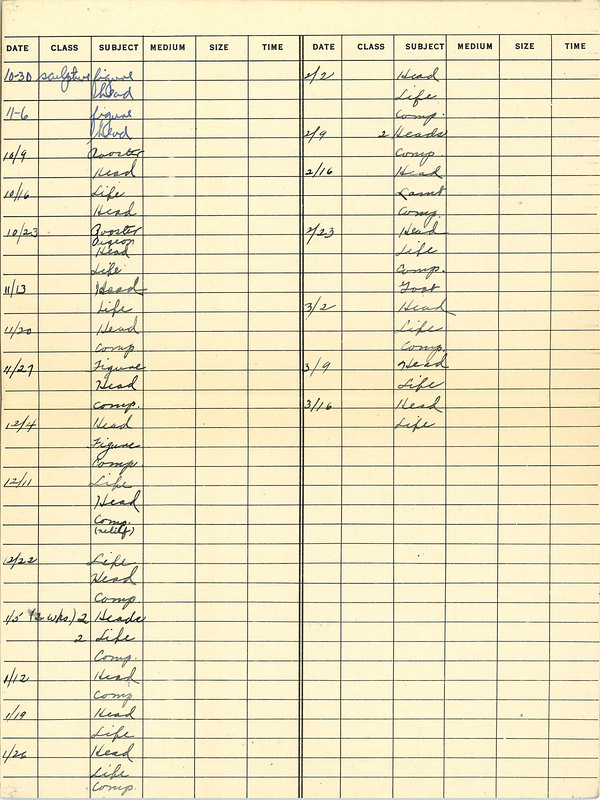 DATE CLASS SUBJECT MEDIUM SIZE TIME
10-30 sculpture figure
head
11-6 figure
head
10/9 Rooster
Head
10/16 Life
Head
10/23 Rooster
Pigeon
Head
Life
11/13 Head
Life
11/20 Head
Comp
11/27 Figure
Head
Comp.
12/4 Head
Figure
Comp.
12/11 Life
Head
Comp.
(relief)
12/22 Life
Head
Comp
1/5 (2 wks.) 2 Heads
2 Life
Comp.
1/12 Head
Comp
1/19 Head
Life
1/26 Head
Life
Comp.
DATE CLASS SUBJECT MEDIUM SIZE TIME
2/2 Head
Life
Comp.
2/9 2 Heads
Comp
2/16 Head
Comp.
2/23 Head
Life
Comp.
Foot
3/2 Head
Life
Comp.
3/9 Head
Life
3/16 Head
Life